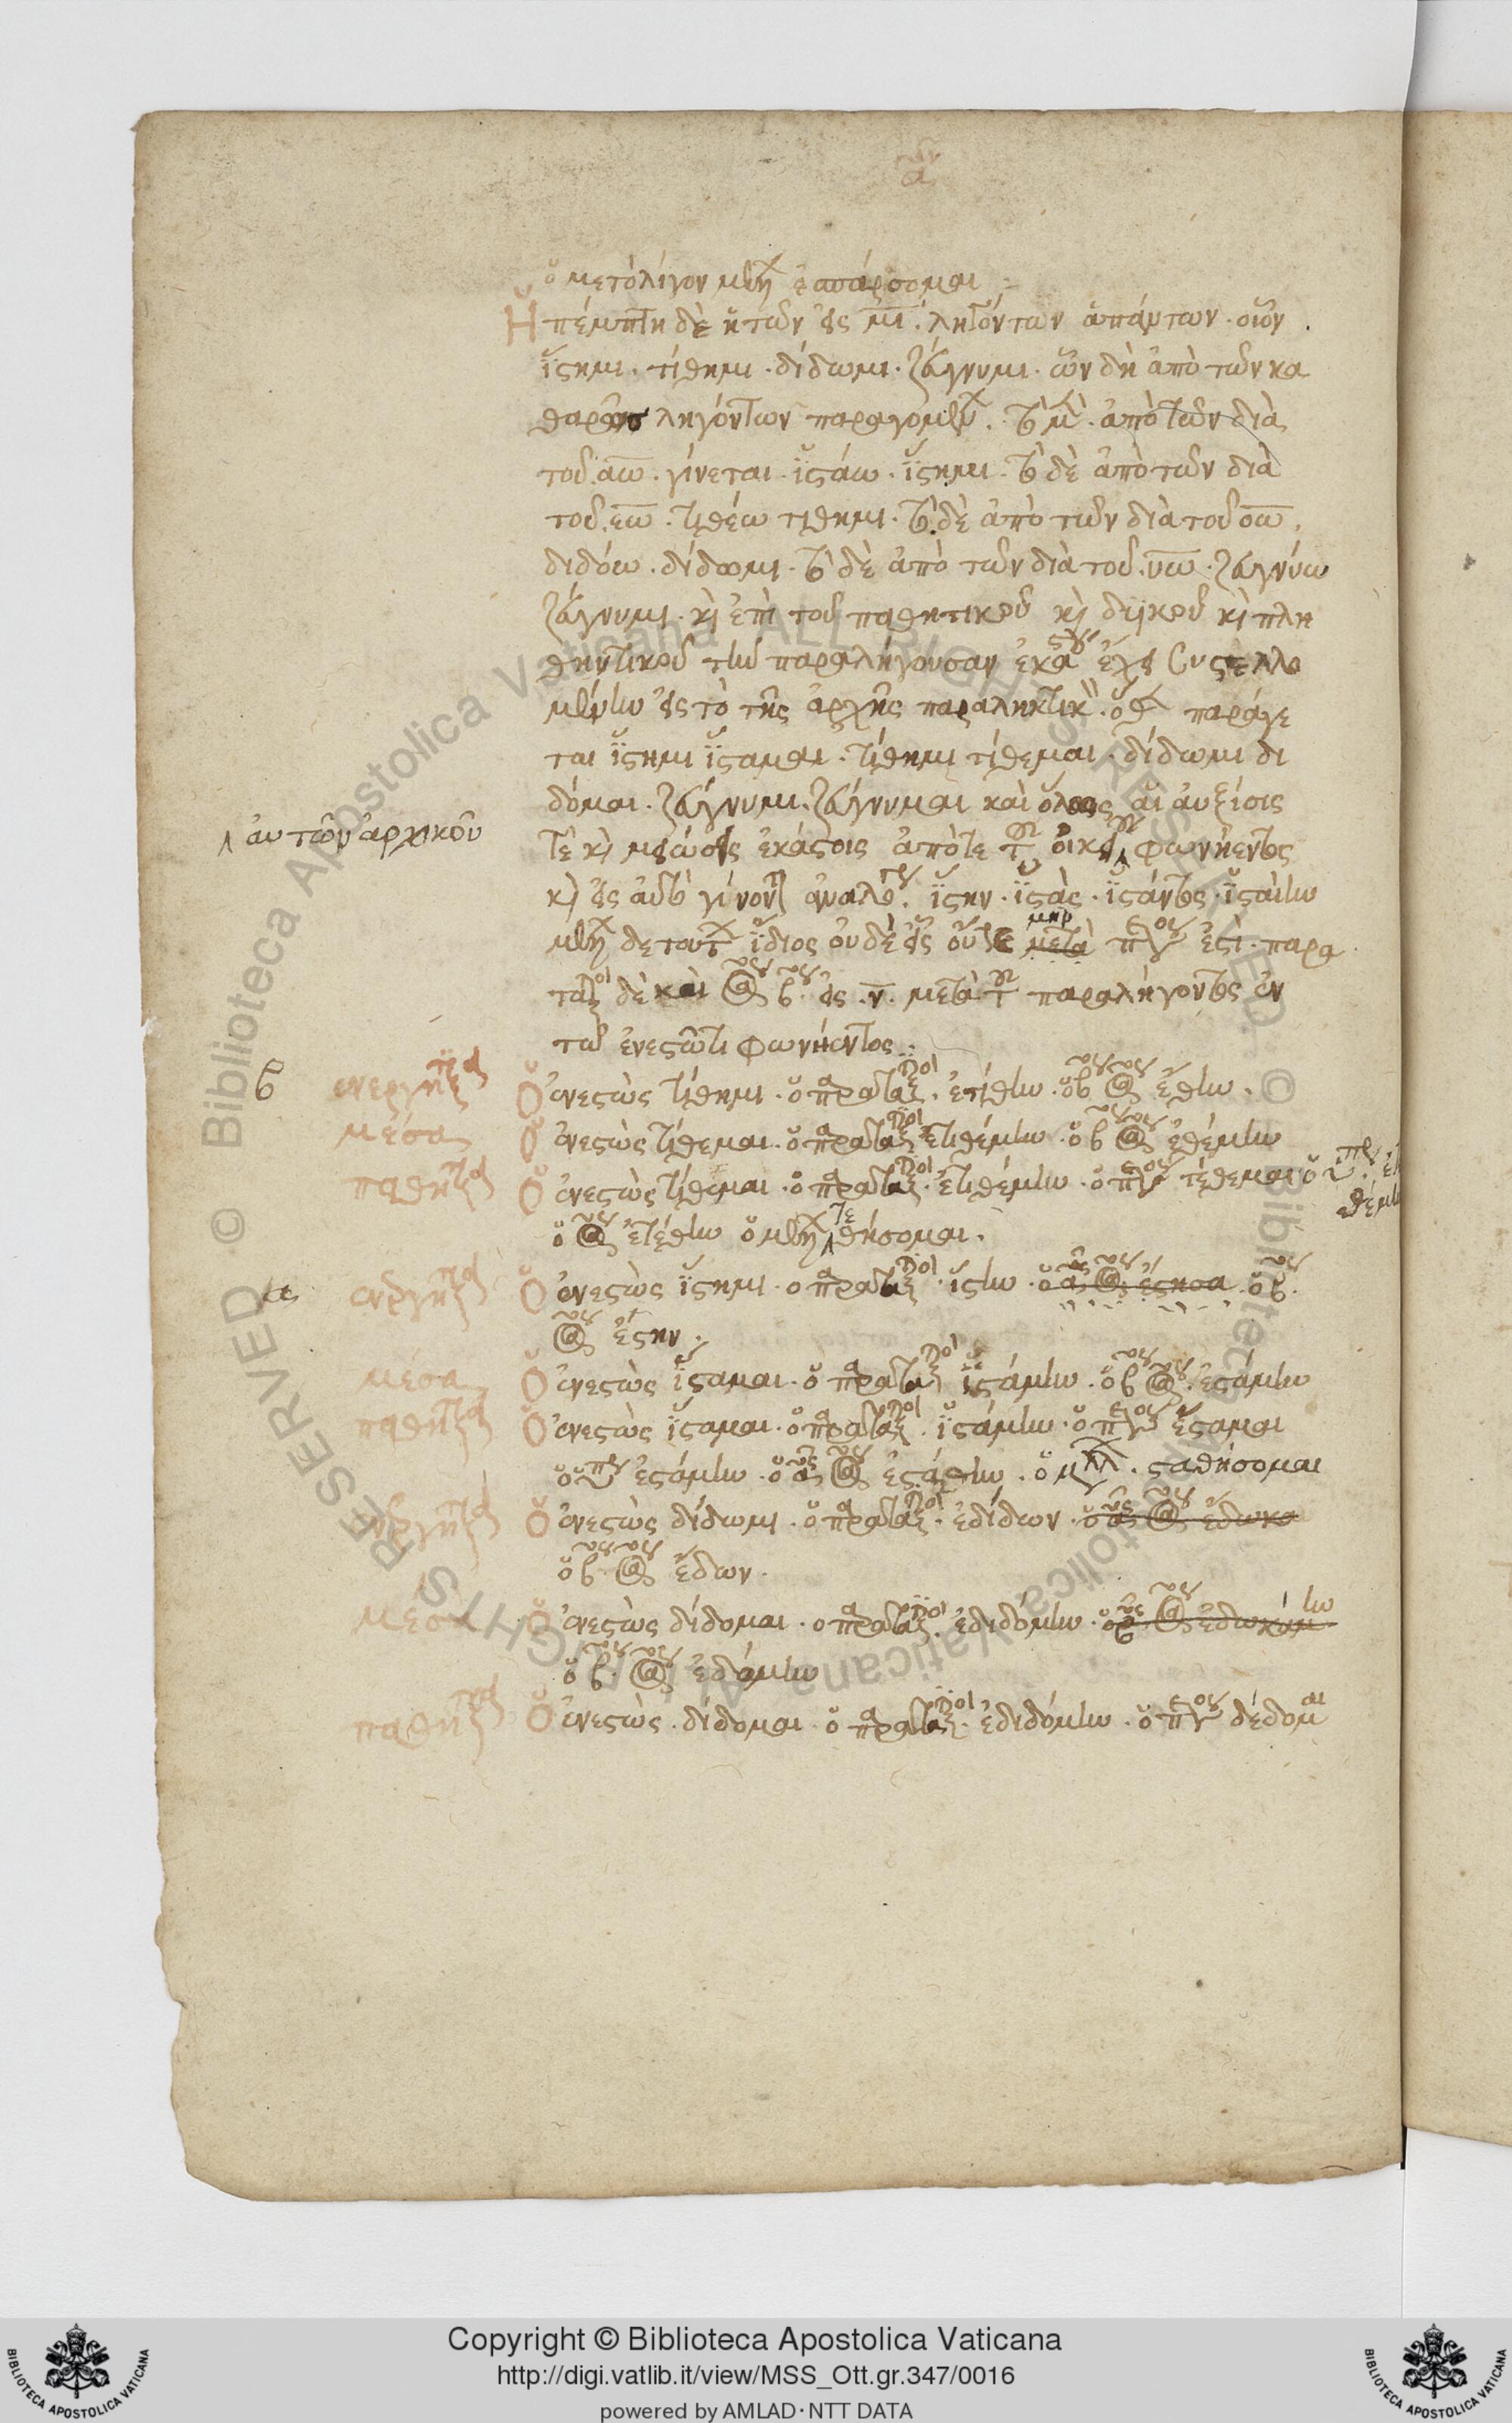 ὁ μετ' ὀλίγον μέλλ ἐσπάρσομαι
Ἡ πέμπτη δὲ ἡ τῶν εἰς μι. ληγόντων ἁπάντων. οἷον
ἵστημι. τίθημι. δίδωμι. ζεύγνυμι. ὧν δὴ ἀπὸ τῶν κα
θαρῶς ληγόντων παραγομέν. τὸ μὲν. ἀπὸ τῶν διὰ
τοῦ αω. γίνεται. ἱστάω. ἵστημι. τὸ δὲ ἀπὸ τῶν διὰ
τοῦ. εω. τιθέω τίθημι. τὸ δὲ ἀπὸ τῶν διὰ τοῦ οω.
διδόω. δίδωμι. τὸ δὲ ἀπὸ τῶν διὰ τοῦ. υω. ζευγνύω
ζεύγνυμι. καὶ ἐπὶ τοῦ παθητικοῦ καὶ δυϊκοῦ καὶ πλη
θυντικοῦ τὴν παραλήγουσαν ἑκάστου ἔχει συστελλο
μένην εἰς τὸ τῆς ἀρχῆς παραληκτικὸν. ὅθεν παράγε
ται ἵστημι ἵσταμαι. τίθημι τίθεμαι. δίδωμι δί
δομαι. ζεύγνυμι. ζεύγνυμαι καὶ ὅλως αἱ αὐξήσεις
αὐτῶν ἀρχικῶν
τὲ καὶ μειώσεις ἑκάστοις ἀπό τε τῶν οἰκείων φωνήεντος
καὶ εἰς αὐτὸ γίνονται ἀναλό. ἵστην. ἱστὰς. ἱστάντος. ἱσταίην
μέλλ δὲ τούτων ἴδιος οὐδεὶς οὔτε μὴν μετὰ ἐστὶ. παρα
τατικοὶ δὲ καὶ β. εἰς. ν. μετὰ τοῦ παραλήγοντος ἐν
τῷ ἐνεστῶτι φωνήεντος
β ἐνεργητικὰ Ὁ ἐνεστὼς τίθημι. ὁ παρατατικὸς. ἐτίθην. ὁ β ἔθην.
μέσα Ὁ ἐνεστὼς τίθεμαι. ὁ παρατατικὸς ἐτιθέμην. ὁ β ἐθέμην
παθητικὰ Ὁ ἐνεστὼς τίθεμαι. ὁ παρατατικὸς. ἐτιθέμην. ὁ τέθεμαι ὁ
θέμην
ὁ ἐτέθην ὁ μέλλ τεθήσομαι.
α ἐνεργητικὰ Ὁ ἐνεστὼς ἵστημι. ὁ παρατατικὸς. ἵστην. ὁ α ἔστησα ὁ β.
ἔστην.
μέσα Ὁ ἐνεστὼς ἵσταμαι. ὁ παρατατικὸς ἱστάμην. ὁ β. ἐστάμην
παθητικὰ Ὁ ἐνεστὼς ἵσταμαι. ὁ παρατατικὸς. ἱστάμην. ὁ ἕσταμαι
ὁ ἐστάμην. ὁ α ἐστάθην. ὁ μέλλ. σταθήσομαι
ἐνεργητικὰ Ὁ ἐνεστὼς δίδωμι. ὁ παρατατικὸς. ἐδίδων. ὁ α ἔδωκα
ὁ β. ἔδων.
μέσα Ὁ ἐνεστὼς δίδομαι. ὁ παρατατικὸς. ἐδιδόμην. ὁ ἐδωκάμην
ὁ β. ἐδόμην
παθητικὰ Ὁ ἐνεστὼς. δίδομαι. ὁ παρατατικὸς. ἐδιδόμην. ὁ δέδομαι
© Biblioteca Apostolica Vaticana ALL RIGHTS RESERVED
Copyright © Biblioteca Apostolica Vaticana
http://digi.vatlib.it/view/MSS_Ott.gr.347/0016
powered by AMLAD·NTT DATA
BIBLIOTECA APOSTOLICA VATICANA
BIBLIOTECA APOSTOLICA VATICANA